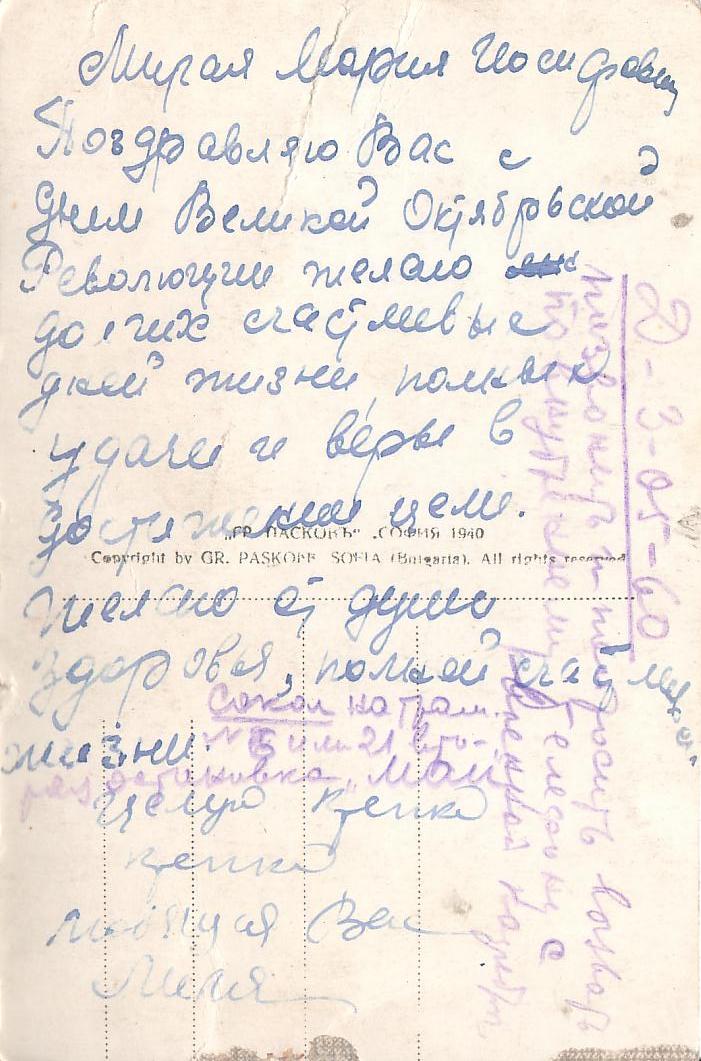 Милая Мария Иосифовна
Поздравляю Вас с
Днем Великой Октябрьской
Революции желаю
долгих счастливые
дней жизни, полных
удачи и веры в
достижении цели.
„ГР. ПАСКОВЪ" .СОФИЯ 1940
Copyright by GR. PASKOFF SOFIA (Bulgaria). All rights reserved
Желаю от души
здоровья, полной счастливой
жизни.
Целую крепко
крепко
любящая Вас
Сокол на трам.
№ 6 или 21 вто-
рая остановка
Д-3-05-60
позвонить и попросить
по внутреннему телефону с